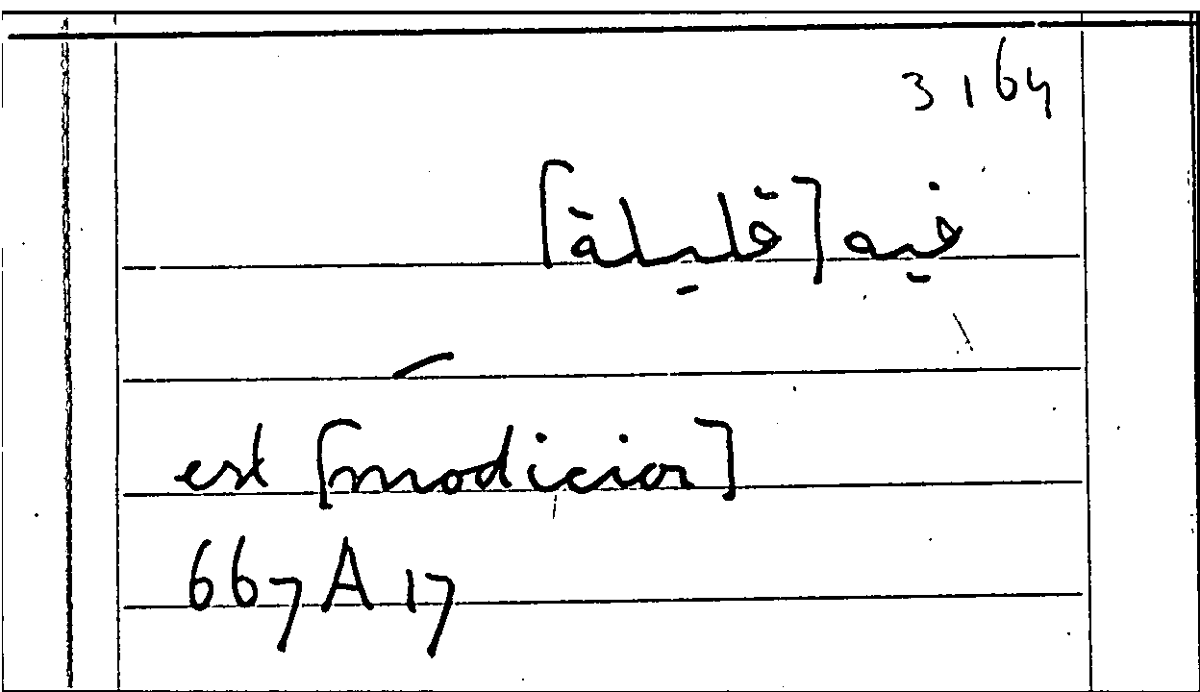 3164
فيه [قليلة]
est [modicior]
667A17